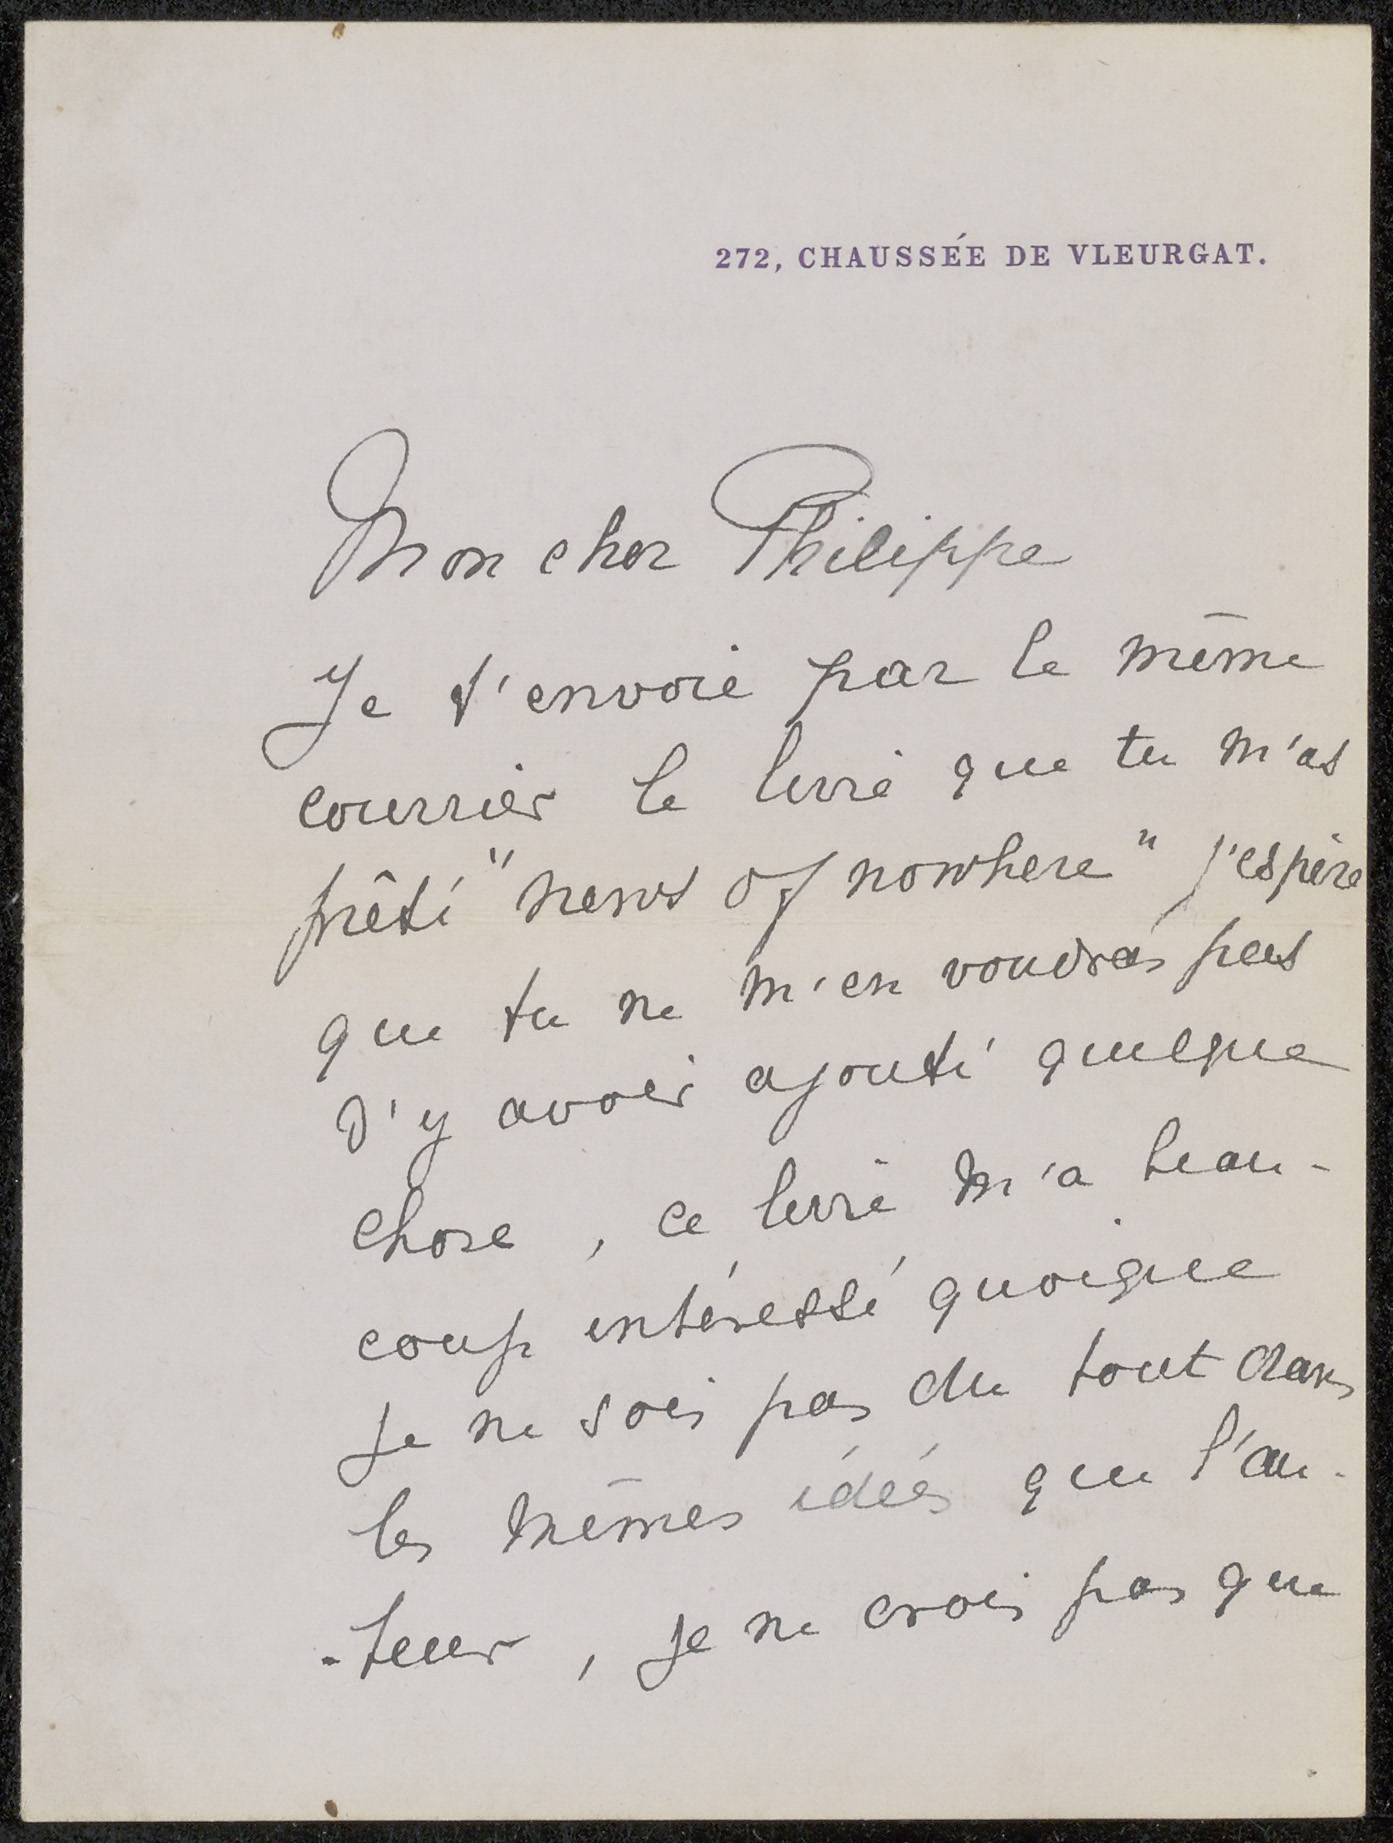 272, CHAUSSÉE DE VLEURGAT.
Mon cher Philippe
Je t'envoie par le même
courrier le livre que tu m'as
prêté "news of nowhere" j'espère
que tu ne m'en voudras pas
d'y avoir ajouté quelque
chose, ce livre m'a beau-
coup intéressé quoique
je ne sois pas du tout dans
les mêmes idées que l'au-
-teur, je ne crois pas que